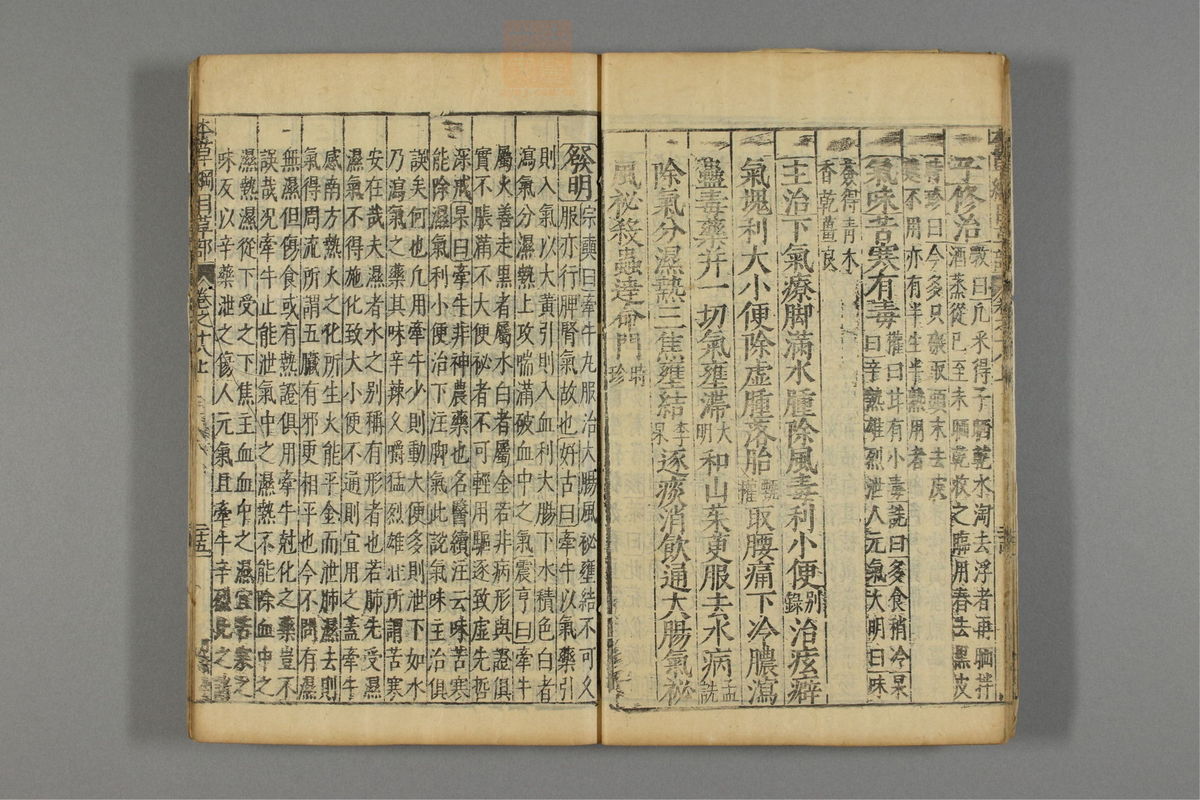 子修治
斅曰凡采得子晒乾水淘去浮者再晒拌
酒蒸從巳至未晒乾收之臨用舂去黑皮
時珍曰今多只碾取頭末去皮
麩不用亦有半生半熟用者
氣味苦寒有毒
權曰甘有小毒詵曰多食稍冷杲
曰辛熱雄烈泄人元氣大明曰味
薟得青木
香乾薑良
主治下氣療脚滿水腫除風毒利小便別錄治痃癖
氣塊利大小便除虛腫落胎甄權取腰痛下冷膿瀉
蠱毒藥并一切氣壅滯大明和山茱萸服去水病孟詵
除氣分濕熱三焦壅結李杲逐痰消飲通大腸氣祕
風祕殺蟲達命門時珍
發明宗奭曰牽牛丸服治大腸風祕壅結不可久
服亦行脾腎氣故也好古曰牽牛以氣藥引
則入氣以大黃引則入血利大腸下水積色白者
瀉氣分濕熱上攻喘滿破血中之氣震亨曰牽牛
屬火善走黑者屬水白者屬金若非病形與證俱
實不脹滿不大便祕者不可輕用驅逐致虛先哲
深戒杲曰牽牛非神農藥也名醫續注云味苦寒
能除濕氣利小便治下注脚氣此說氣味主治俱
誤矣何也凡用牽牛少則動大便多則泄下如水
乃瀉氣之藥其味辛辣久嚼猛烈雄壯所謂苦寒
安在哉夫濕者水之别稱有形者也若肺先受濕
濕氣不得施化致大小便不通則宜用之蓋牽牛
感南方熱火之化所生火能平金而泄肺濕去則
氣得周流所謂五臟有邪更相平也今不問有濕
無濕但傷食或有熱證俱用牽牛尅化之藥豈不
誤哉况牽牛止能泄氣中之濕熱不能除血中之
濕熱濕從下受之下焦主血血中之濕宜苦寒之
味反以辛藥泄之傷人元氣且牽牛辛烈比之諸
本草綱目草部 卷之十八上 二十五